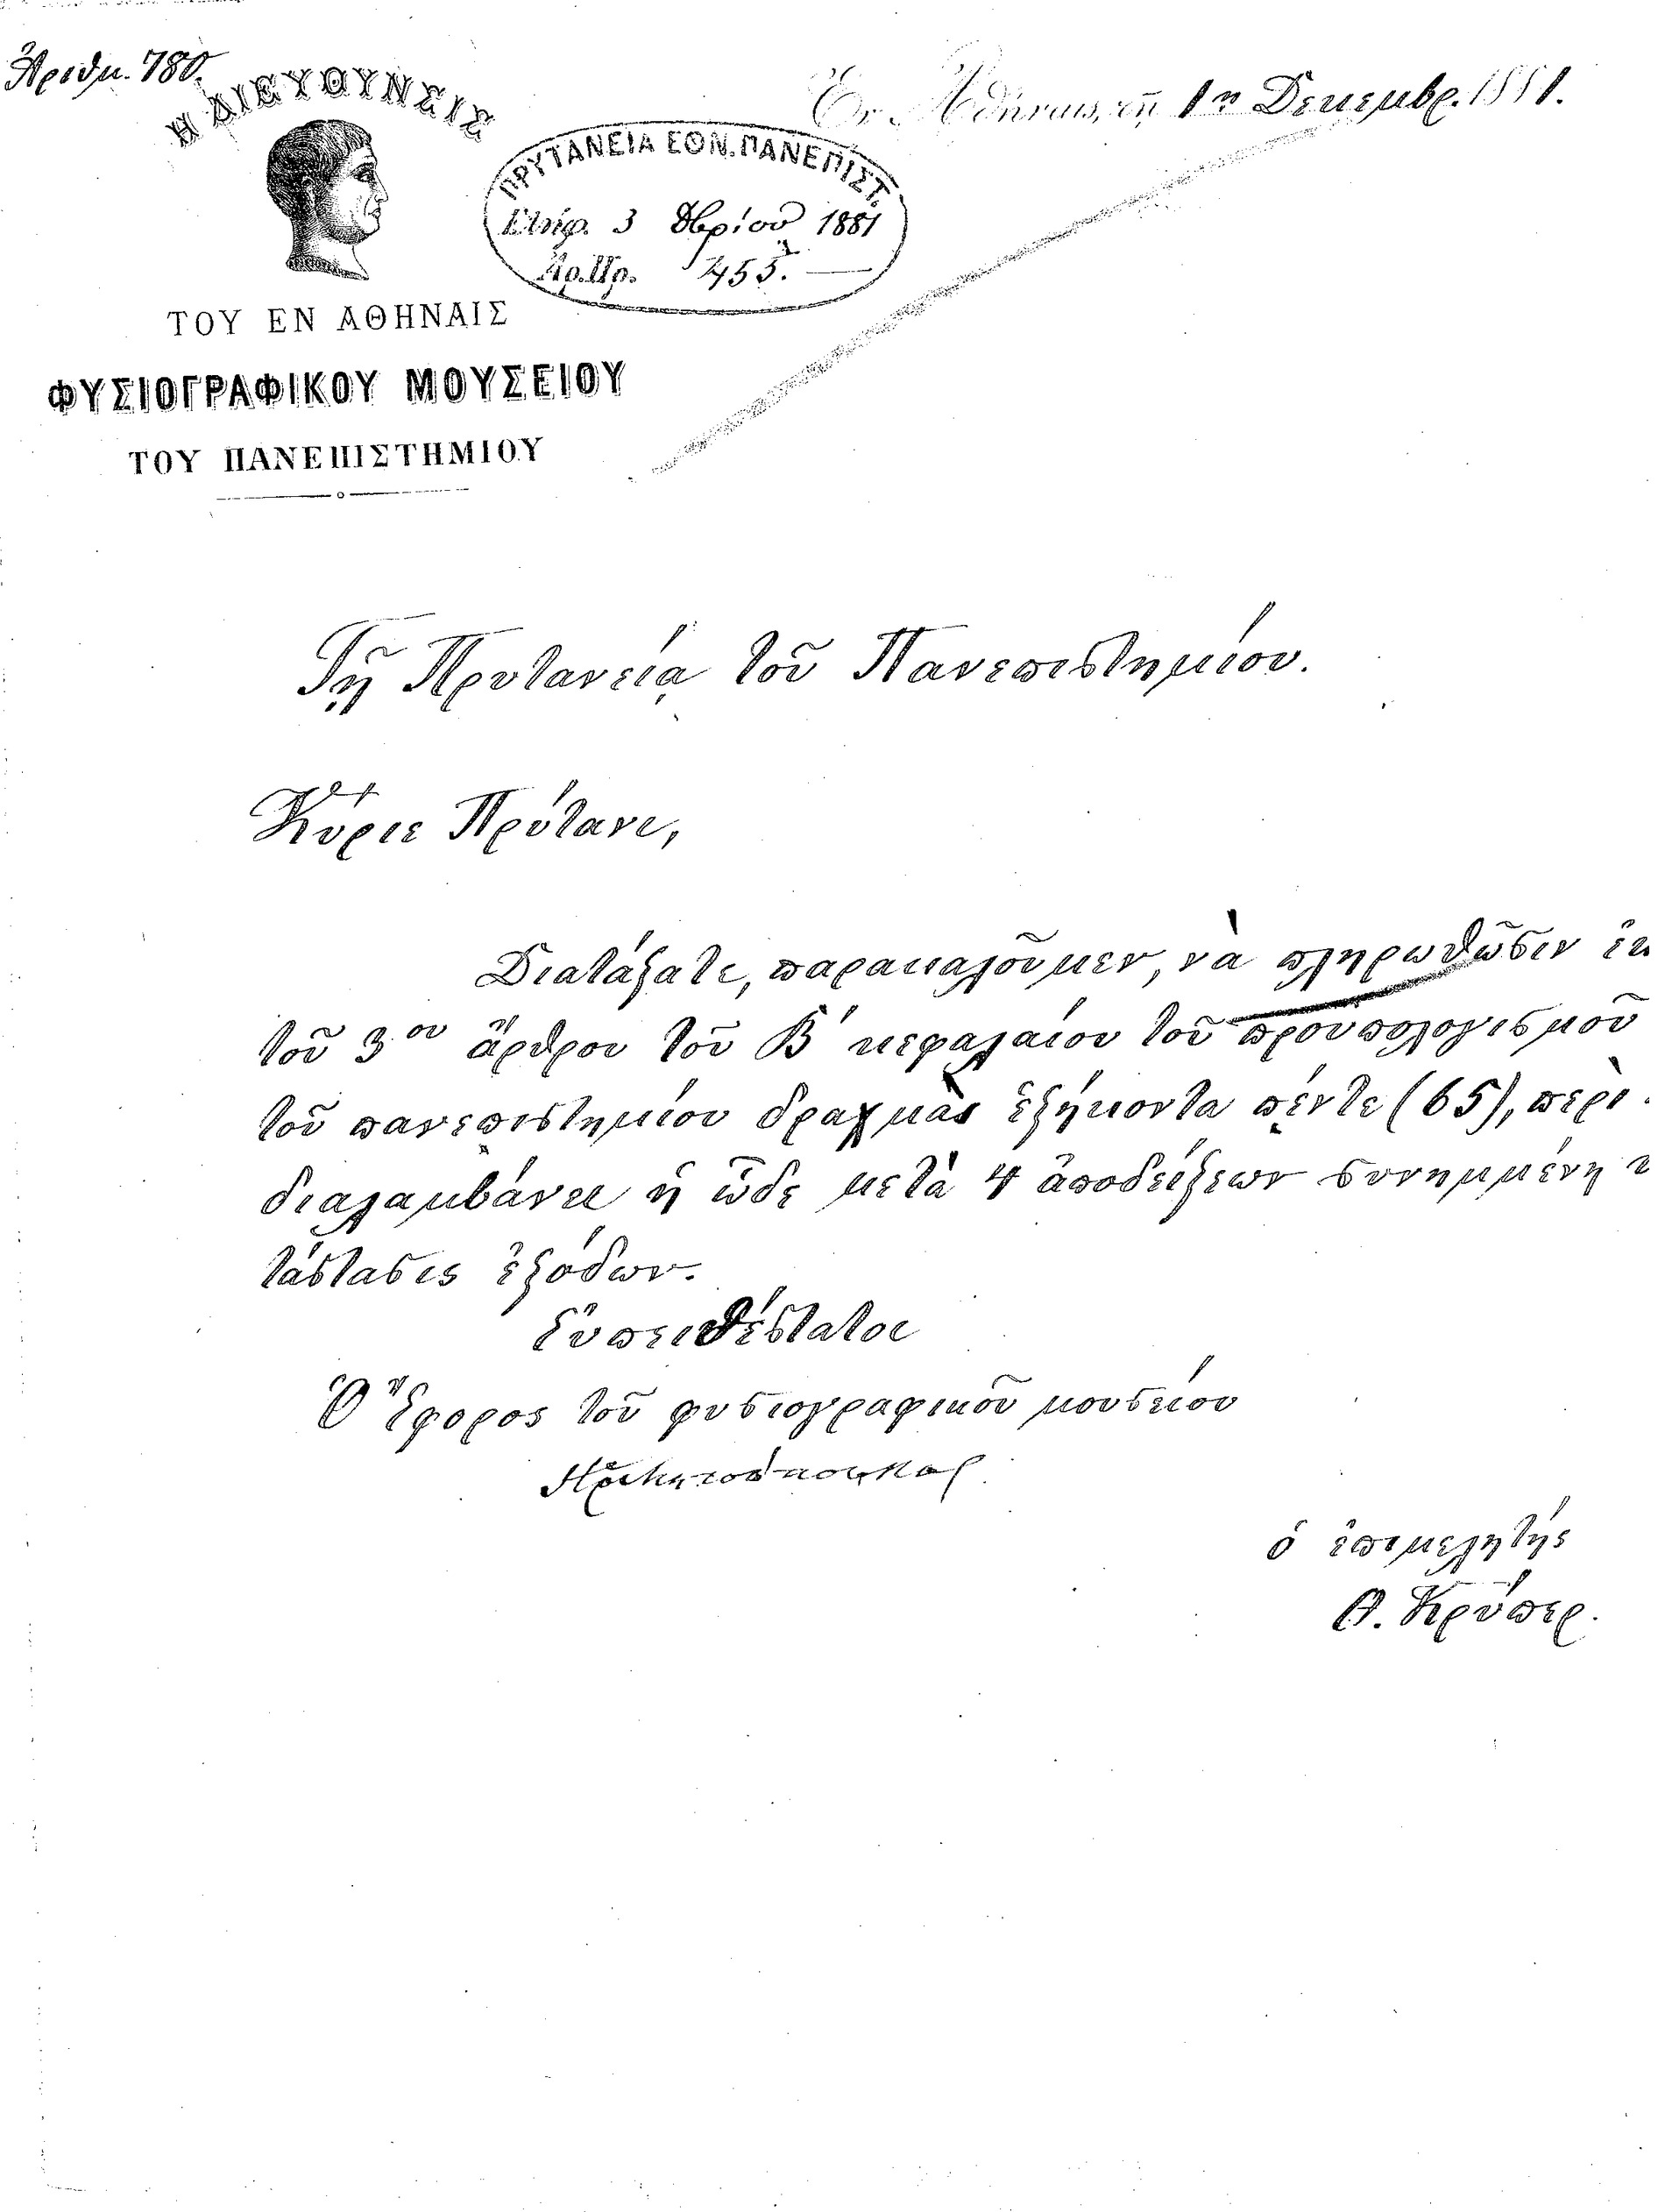 Ἀριθμ. 780.
Ἐν Ἀθήναις, τῇ 1ῃ Δεκεμβρ. 1881.
Η ΔΙΕΥΘΥΝΣΙΣ
ΠΡΥΤΑΝΕΙΑ ΕΘΝ. ΠΑΝΕΠΙΣΤ.
Ἐλήφ. 3 Χβρίου 1881
Ἀρ. Πρ. 455.
ΤΟΥ ΕΝ ΑΘΗΝΑΙΣ
ΦΥΣΙΟΓΡΑΦΙΚΟΥ ΜΟΥΣΕΙΟΥ
ΤΟΥ ΠΑΝΕΠΙΣΤΗΜΙΟΥ
Τῇ Πρυτανείᾳ τοῦ Πανεπιστημίου.
Κύριε Πρύτανι,
Διατάξατε, παρακαλοῦμεν, νὰ πληρωθῶσιν ἐκ
τοῦ 3ου ἄρθρου τοῦ Β' κεφαλαίου τοῦ προϋπολογισμοῦ
τοῦ πανεπιστημίου δραχμὰς ἑξήκοντα πέντε (65), περὶ
διαλαμβάνει ἡ ὧδε μετὰ 4 ἀποδείξεων συνημμένη κ
τάστασις ἐξόδων.
Εὐπειθέστατοι
Ὁ Ἔφορος τοῦ φυσιογραφικοῦ μουσείου
ὁ ἐπιμελητής
Θ. Κρύπερ.